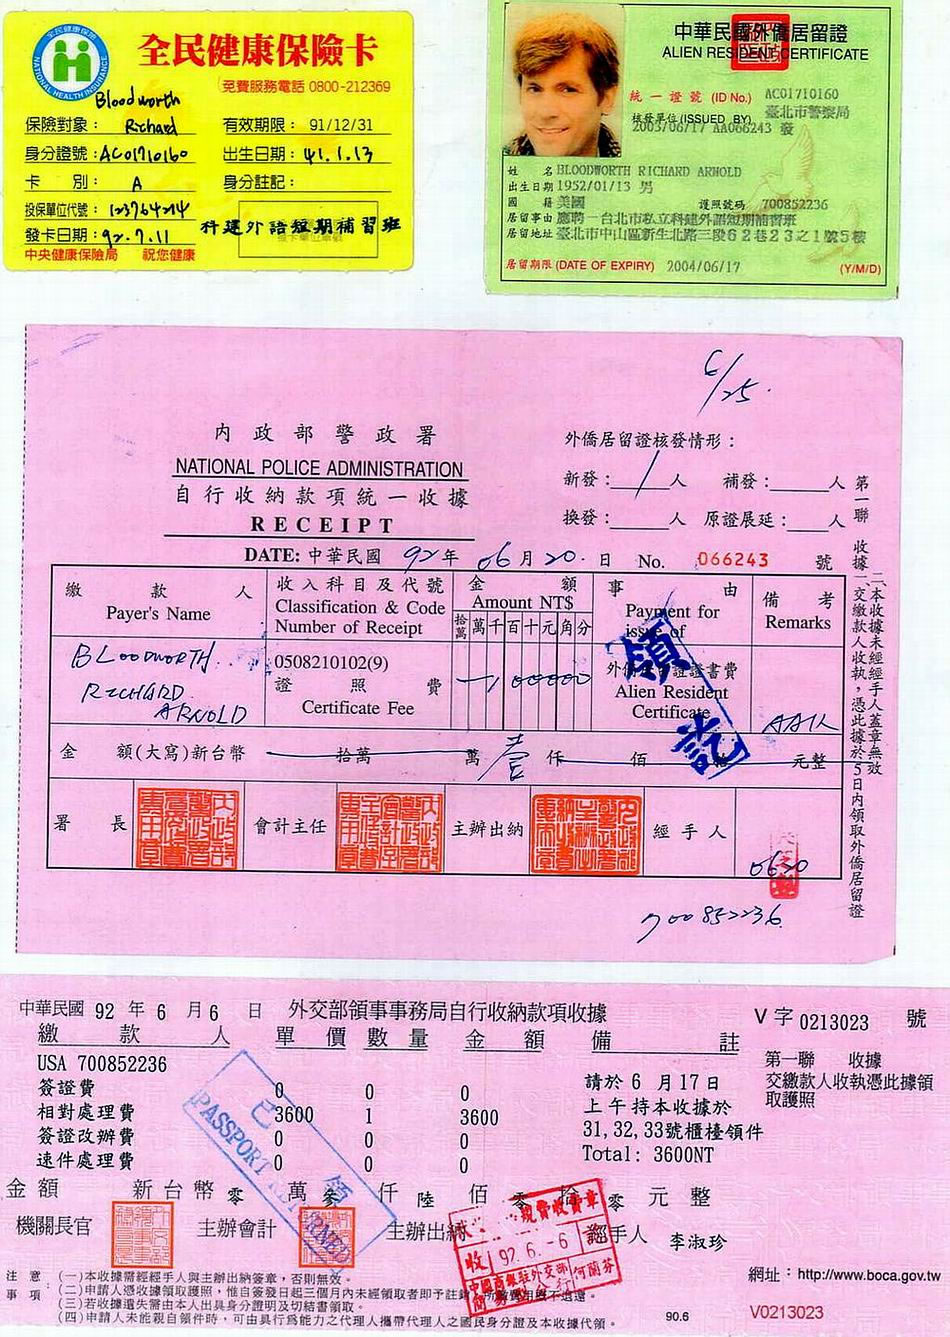 全民健康保險
NATIONAL HEALTH INSURANCE
全民健康保險卡
免費服務電話 0800-212369
Bloodworth
保險對象： Richard 有效期限： 91/12/31
身分證號：AC01710160 出生日期： 41.1.13
卡 別： A 身分註記：
投保單位代號： 123764274
發卡日期：92.7.11 科建外語短期補習班
中央健康保險局 祝您健康
中華民國外僑居留證
ALIEN RESIDENT CERTIFICATE
統一證號 (ID No.) AC01710160
核發單位(ISSUED BY) 臺北市警察局
2003/06/17 AA066243 發
姓 名 BLOODWORTH RICHARD ARNOLD
出生日期 1952/01/13 男
國 籍 美國 護照號碼 700852236
居留事由 應聘－台北市私立科建外語短期補習班
居留地址 臺北市中山區新生北路三段62巷23之1號5樓
居留期限 (DATE OF EXPIRY) 2004/06/17 (Y/M/D)
6/25.
內政部警政署
NATIONAL POLICE ADMINISTRATION
自行收納款項統一收據
RECEIPT
外僑居留證核發情形：
新發： 1 人 補發： 人
換發： 人 原證展延： 人
DATE: 中華民國 92 年 06 月 20 日 No. 066243 號
繳款人
Payer's Name
收入科目及代號
Classification & Code
Number of Receipt
金額
Amount NT$
拾萬 萬 千 百 十 元 角 分
事由
Payment for
issue of
備考
Remarks
BLOODWORTH
RICHARD
ARNOLD
0508210102(9)
證照費
Certificate Fee
100000
外僑居留證證書費
Alien Resident
Certificate
領訖
金 額(大寫)新台幣 拾萬 萬 壹 仟 佰 拾 元整
署 長 會計主任 主辦出納 經手人
0620
700852236
第一聯 收據 交繳款人收執，憑此據於5日內領取外僑居留證
二、本收據未經經手人蓋章無效
中華民國 92 年 6 月 6 日 外交部領事事務局自行收納款項收據 V字 0213023 號
繳款人 單價 數量 金額 備註
USA 700852236
簽證費 0 0 0
相對處理費 3600 1 3600
簽證改辦費 0 0 0
速件處理費 0 0 0
請於 6 月17日
上午持本收據於
31,32,33號櫃檯領件
Total: 3600NT
第一聯 收據
交繳款人收執憑此據領
取護照
已領
PASSPORT RETURNED
金額 新台幣 零 萬 參 仟 陸 佰 零 拾 零 元 整
機關長官 主辦會計 主辦出納 經手人 李淑珍
收 92.6.-6
何蘭芬
注意事項
(一)本收據需經經手人與主辦出納簽章，否則無效。
(二)申請人憑收據領取護照，惟自簽發日起三個月內未經領取者即予註銷，所繳費用概不退還。
(三)若收據遺失需由本人出具身分證明及切結書領取。
(四)申請人未能親自領件時，可由具行為能力之代理人攜帶代理人之國民身分證及本收據代領。
網址：http://www.boca.gov.tw
90.6 V0213023